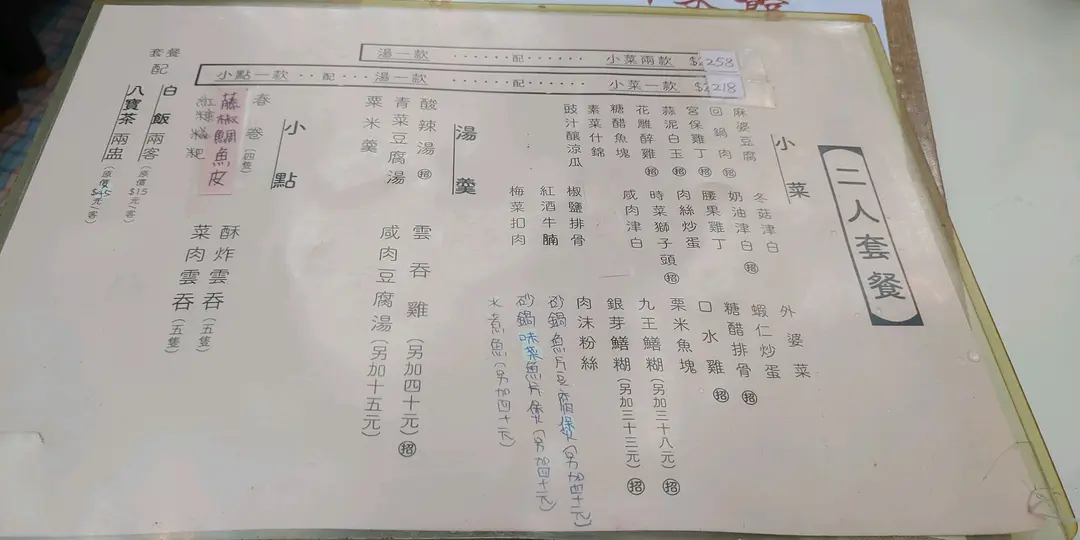 二人套餐
湯一款 ······配······ 小菜兩款 $258
小點一款 ··配··· 湯一款 ······配······ 小菜一款 $218
小菜
麻婆豆腐
回鍋肉 招
宮保雞丁 招
蒜泥白玉
花雕醉雞 招
糖醋魚塊
素菜什錦
豉汁釀涼瓜
冬菇津白
奶油津白 招
腰果雞丁
肉絲炒蛋
時菜獅子頭 招
咸肉津白
椒鹽排骨
紅酒牛腩
梅菜扣肉
外婆菜
蝦仁炒蛋
糖醋排骨 招
口水雞 招
粟米魚塊
九王鱔糊(另加三十八元) 招
銀芽鱔糊(另加三十三元) 招
肉沫粉絲
砂鍋魚片豆腐煲(另加四十元)
砂鍋味菜魚片煲(另加四十元)
水煮魚(另加四十元)
湯羹
酸辣湯 招
青菜豆腐湯
粟米羹
雲吞雞(另加四十元) 招
咸肉豆腐湯(另加十五元)
小點
春卷(四隻)
藤椒鯛魚皮
紅糖糍粑
酥炸雲吞(五隻)
菜肉雲吞(五隻)
套餐
配
白飯兩客(原價$15元/客)
八寶茶兩盅(原價$45元/客)